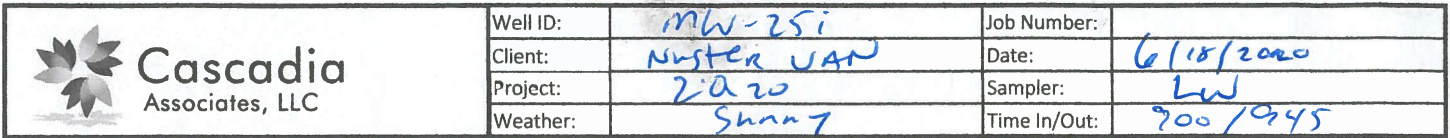 Cascadia
Associates, LLC
Well ID: MW-25i Job Number:
Client: NuStER VAN Date: 6/18/2020
Project: 2Q20 Sampler: LW
Weather: Sunny Time In/Out: 900/945